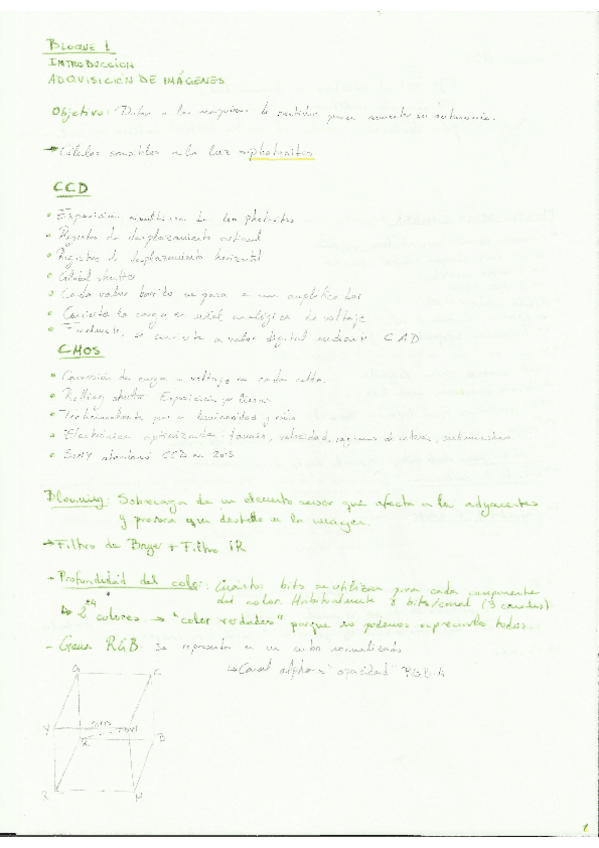 BLOQUE 1
INTRODUCCIÓN
ADQUISICIÓN DE IMÁGENES
Objetivo: Dotar a las máquinas de sentidos para aumentar su autonomía.
→ Células sensibles a la luz → photosites
CCD
• Exposición simultánea de los photosites
• Registro de desplazamiento vertical
• Registro de desplazamiento horizontal
• Global shutter
• Cada valor barrido se pasa a un amplificador
• Convierte la carga en señal analógica de voltaje
• Finalmente, se convierte a valor digital mediante CAD
CMOS
• Conversión de carga a voltaje en cada celda.
• Rolling shutter. Exposición por líneas
• Tradicionalmente peor luminosidad y ruido
• Electrónica optimizada: tamaño, velocidad, regiones de interés, submuestreo
• SONY abandonó CCD en 2015
Blooming: Sobrecarga de un elemento sensor que afecta a los adyacentes
y provoca un destello en la imagen.
→ Filtro de Bayer + Filtro IR
- Profundidad del color: Cuántos bits se utilizan para cada componente
del color. Habitualmente 8 bits/canal (3 canales)
↳ 2²⁴ colores → "color verdadero" porque no podemos apreciarlos todos.
- Gama RGB: Se representa en un cubo normalizado
↳ Canal alpha = "opacidad" RGB-A
G C
Y
B
R M
1